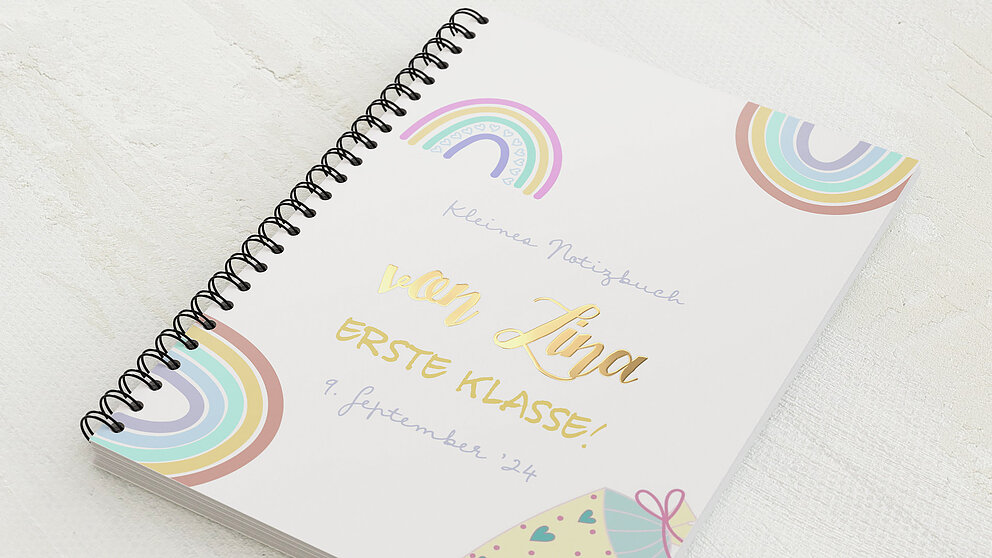 Kleines Notizbuch
von Lina
ERSTE KLASSE!
9. September '24